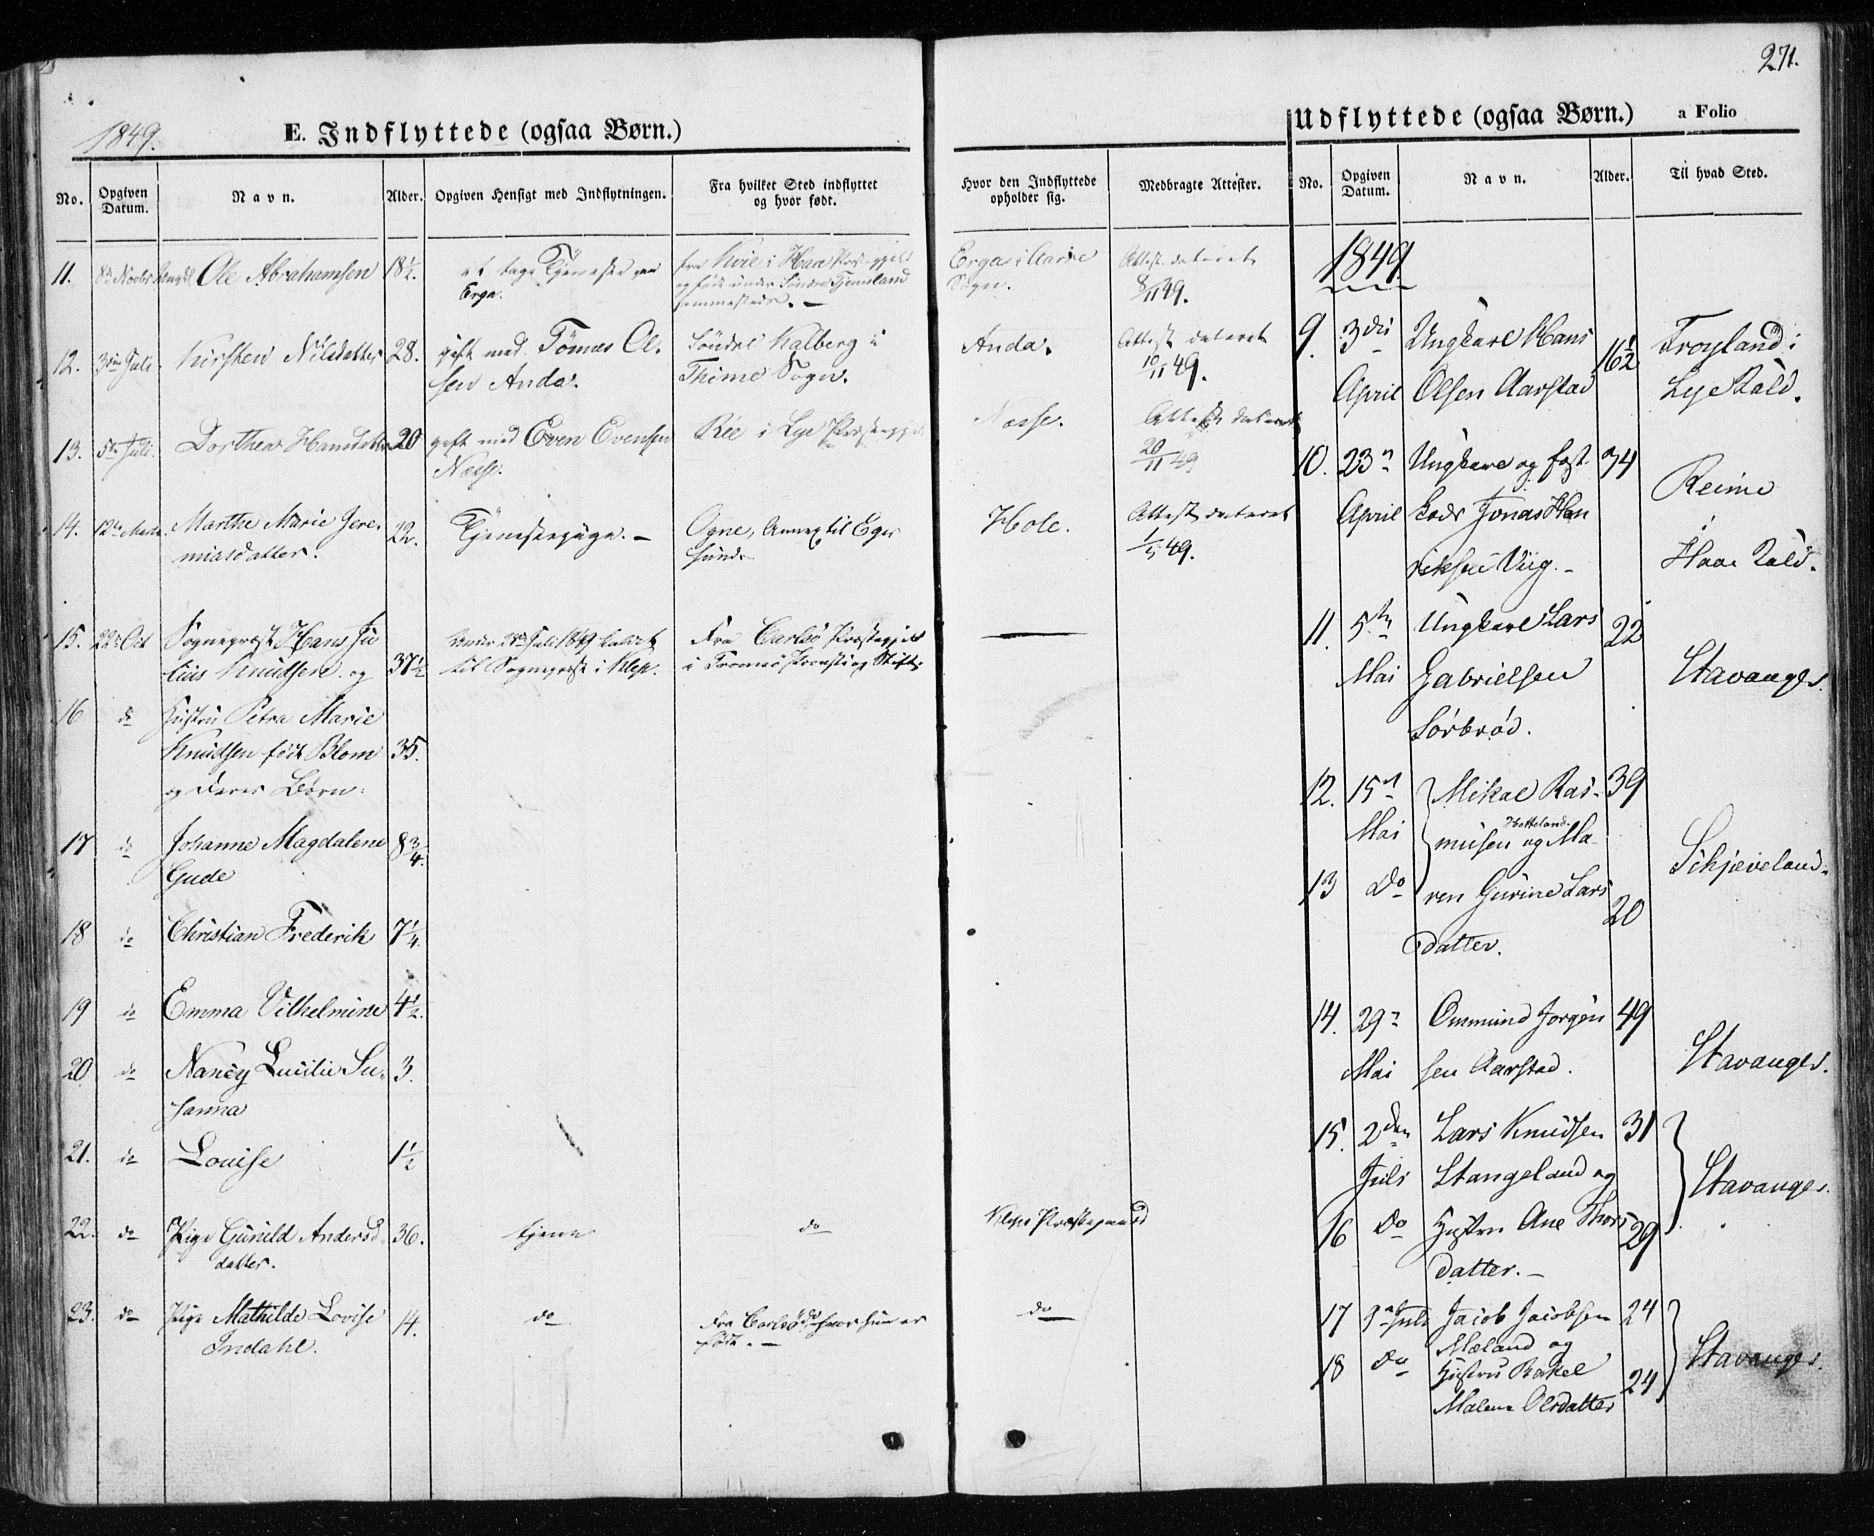 271.
1849.
E. Indflyttede (ogsaa Børn.)
No. Opgiven Datum. Navn. Alder. Opgiven Hensigt med Indflytningen. Fra hvilket Sted indflyttet og hvor født. Hvor den Indflyttede opholder sig. Medbragte Attester.
11. Ole Abrahamsen 18½. at tage Tjeneste paa Erga.
Erga i
Sogn. Attest dateret 8/11 49.
12. 3die Juli. Kirsten Nilsdatter 28. gift med Tønnes Ol-
sen Anda. Søndre Kalberg i
Thime Sogn. Anda. Attest dateret
10/11 49.
13. 5te Juli. Dorthea Hansdatter 20 gift med Even Evensen
Næsse. Rée i Lye Præstegjeld Næsse. Attest dateret
20/11 49
14. 12te Marthe Marie Jere-
miasdatter. 22. Tjenestepige. – Ogne, Annex til Eger
sund. Hole. Attest dateret
1/5 49.
15. 22 Oct Sognepræst Hans Ju
lius Knudsen og 37½ Juli 1849 kaldet
til Sognepræst i Klep. Fra Carlsø Præstegjeld
i Tromsø Provsti og Stift
16 do Hustru Petra Marie
Knudsen født Blom 35.
og deres Børn:
17 do Johanne Magdalene 8¾.
Gude
18 do Christian Frederik 7¼.
19 do Emma Vilhelmine 4½.
20 do Nancy Lucilie Su-
sanna 3.
21. do Louise 1½
22. do Pige Gunild Andersd
datter. 36. tjene do Klep Præstegaard
23. do Pige Mathilde Lovise
Indahl. 14. do Fra Carlsø hvor hun er
født. – do
Udflyttede (ogsaa Børn.) a Folio
No. Opgiven Datum. Navn. Alder. Til hvad Sted.
1849
9. 3die
April Ungkarl Hans
Olsen Aarstad 16½ Frøyland i
Lye Præld.
10. 23
April Ungkarl og
Jonas Hen
riksen Viig. – 74 Reime
i
Haae Præld.
11. 5te
Mai Ungkarl Lars
Gabrielsen
Sørbrød. 22 Stavanger.
12. 15
Mai Mikael Ras-
musen Hatteland og Ma- 39
13 do ren Gurine Lars
datter. 20 Schjæveland.
14. 29
Mai Ommund Jørgen
sen Aarstad. 49 Stavanger.
15. 2den
Juli Lars Knudsen
Stangeland og 31 Stavanger.
16 do Hustru Ane Thors
datter. – 29
17 3 Juli Jacob Jacobsen
Mæland og 24 Stavanger.
18 do Hustru Rakel
Malene Olsdatter 24